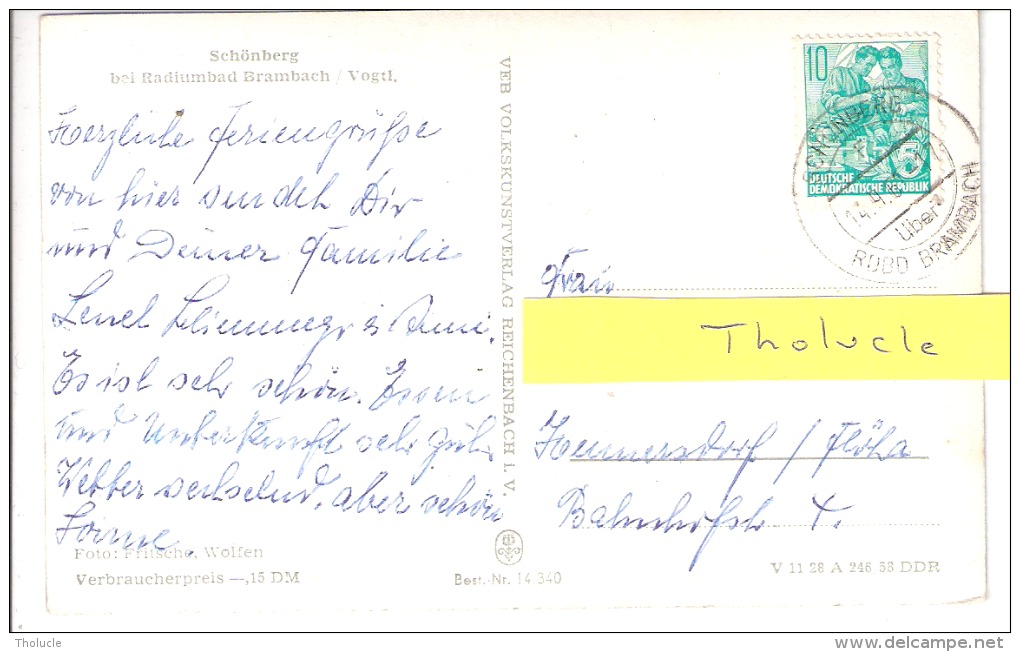 Schönberg
bei Radiumbad Brambach / Vogtl.
Herzliche Feriengrüße
von hier sendet Dir
und Deiner Familie
Es ist sehr schön. Essen
und Unterkunft sehr gut.
Wetter wechselnd, aber schön
Foto: Fritsche, Wolfen
Verbraucherpreis —,15 DM
VEB VOLKSKUNSTVERLAG REICHENBACH i. V.
Best.-Nr. 14.340
10
DEUTSCHE
DEMOKRATISCHE REPUBLIK
SCHÖNBERG
über
RDBD BRAMBACH
Frau
Tholucle
Hennersdorf / Flöha
Bahnhofstr
V 11 28 A 246 58 DDR
Tholucle
www.delcampe.net